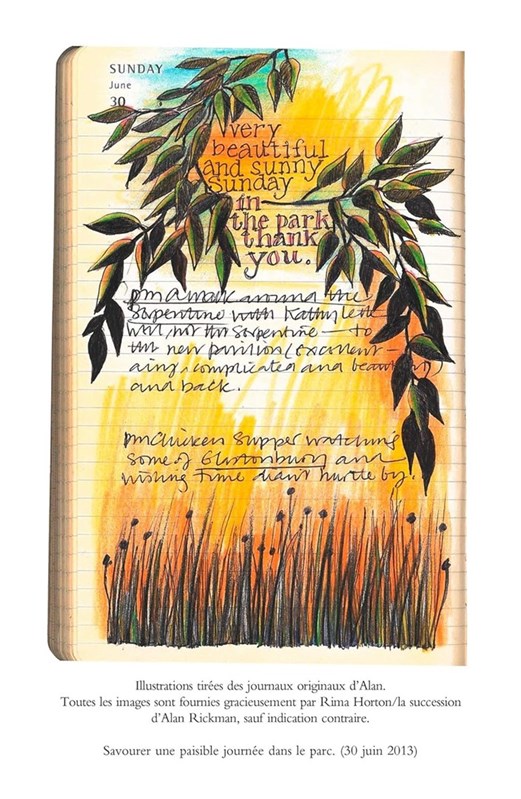 SUNDAY
June
30
very
beautiful
and sunny
Sunday
in
the park
thank
you.
pm A walk around the
Serpentine with Kathy Lette
Well, not the Serpentine — to
the new pavilion (excellent –
airy, complicated and beautiful)
and back.
pm Chicken supper watching
some of Glastonbury and
wishing time didn't hurtle by.
Illustrations tirées des journaux originaux d'Alan.
Toutes les images sont fournies gracieusement par Rima Horton/la succession
d'Alan Rickman, sauf indication contraire.
Savourer une paisible journée dans le parc. (30 juin 2013)